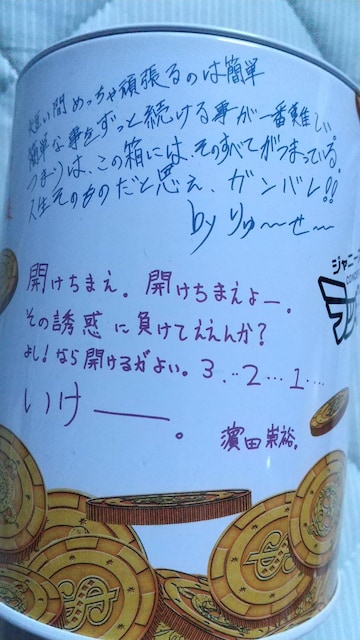 短い間めっちゃ頑張るのは簡単
簡単な事をずっと続ける事が一番難しい。
つまり、この箱には、そのすべてがつまっている。
人生そのものだと思え、ガンバレ!!
by りゅ〜せ〜
開けちまえ。開けちまえよー。
その誘惑に負けてええんか?
よし!なら開けるがよい。3…2…1….
いけー。
濵田崇裕。
ジャニー